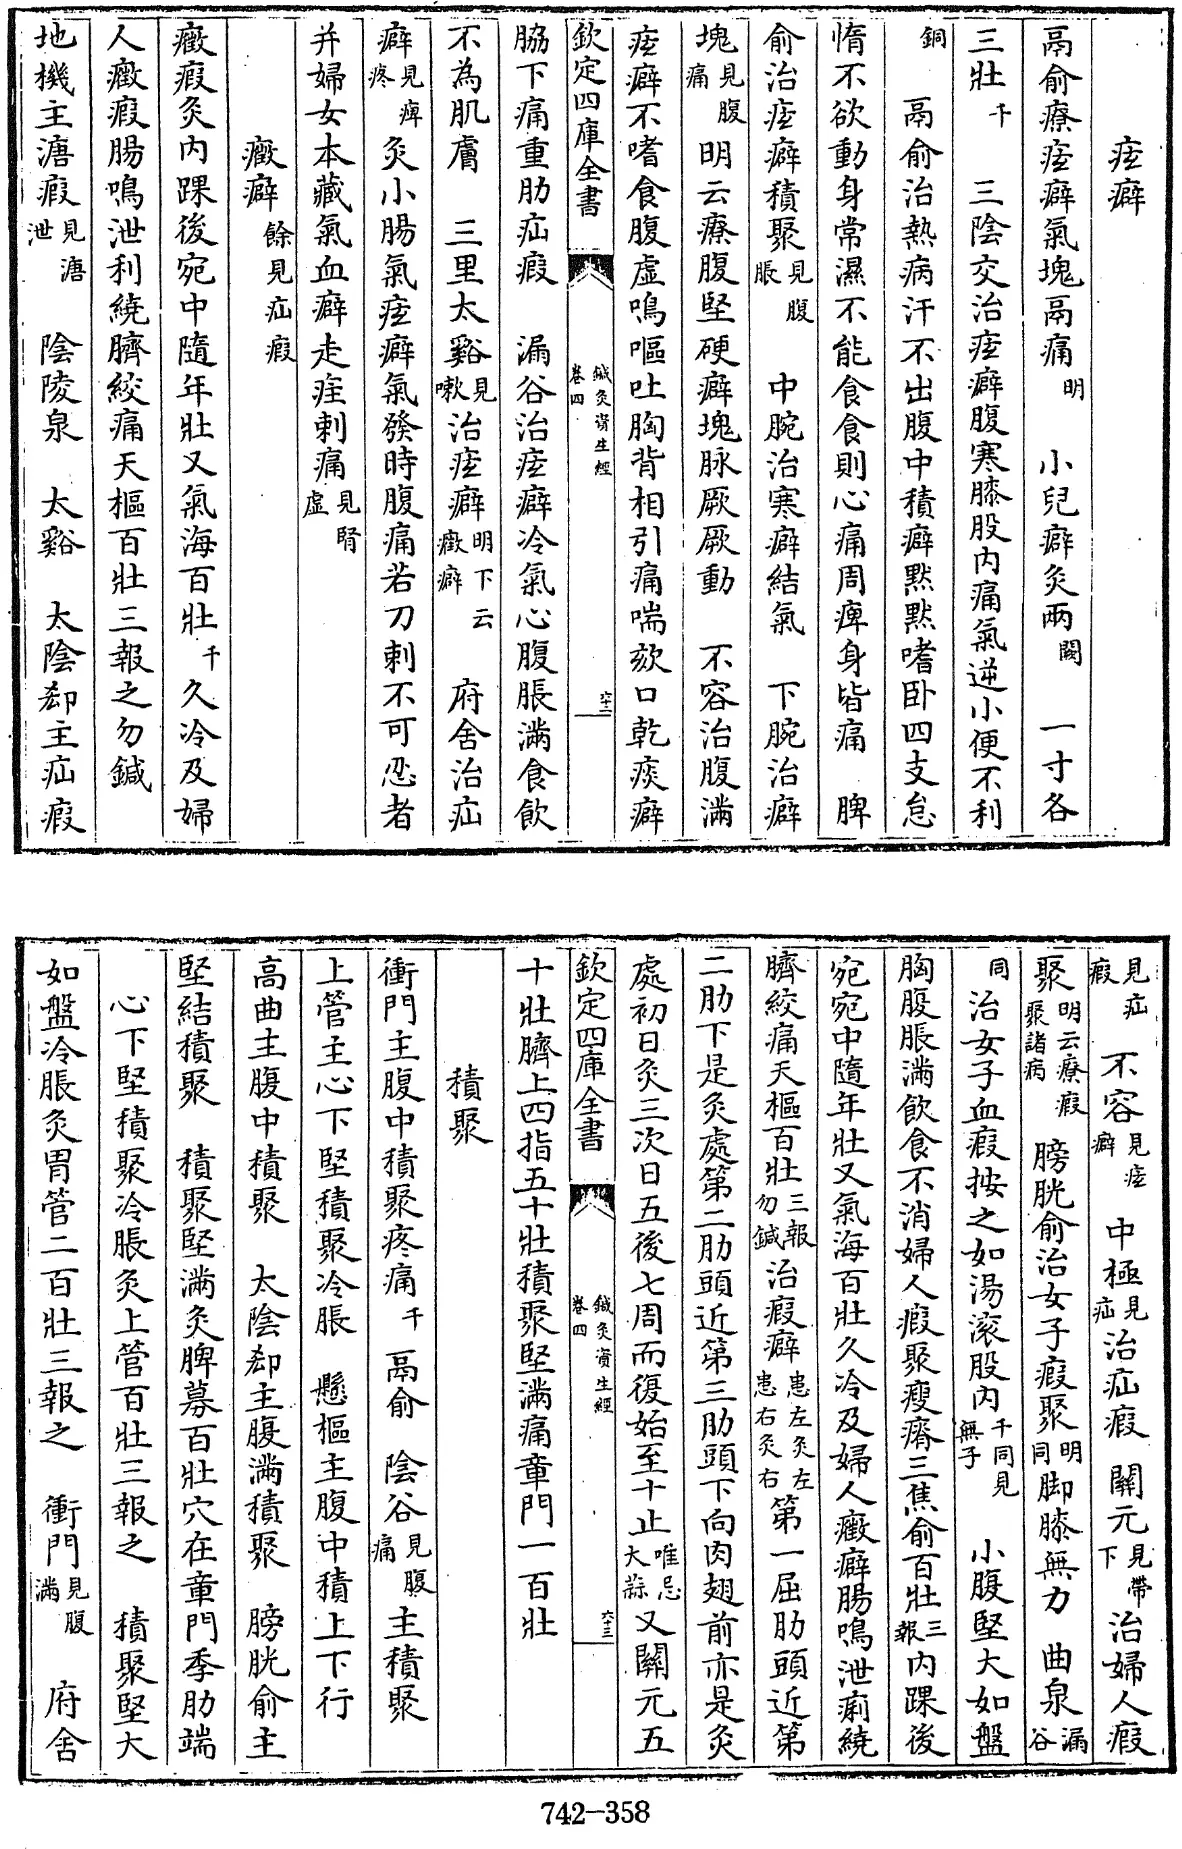 痃癖
鬲俞療痃癖氣塊鬲痛明　小兒癖灸兩闕　一寸各
三壯千　三陰交治痃癖腹寒膝股內痛氣逆小便不利
銅　鬲俞治熱病汗不出腹中積癖默默嗜卧四支怠
惰不欲動身常濕不能食食則心痛周痺身皆痛　脾
俞治痃癖積聚見腹脹　中脘治寒癖結氣　下脘治癖
塊見腹痛　明云療腹堅硬癖塊脉厥厥動　不容治腹滿
痃癖不嗜食腹虛鳴嘔吐胸背相引痛喘欬口乾痰癖
欽定四庫全書　鍼灸資生經卷四　六十二
脇下痛重肋疝瘕　漏谷治痃癖冷氣心腹脹滿食飲
不為肌膚　三里太谿見嗽治痃癖明下云癥癖　府舍治疝
癖見痺疼　灸小腸氣痃癖氣發時腹痛若刀刺不可忍者
并婦女本藏氣血癖走疰刺痛見腎虛
癥癖餘見疝瘕
癥瘕灸內踝後宛中隨年壯又氣海百壯千　久冷及婦
人癥瘕腸鳴泄利繞臍絞痛天樞百壯三報之勿鍼
地機主溏瘕見溏泄　陰陵泉　太谿　太陰郄主疝瘕
見疝瘕　不容見痃癖　中極見疝治疝瘕　關元見帶下治婦人瘕
聚明云療瘕聚諸病　膀胱俞治女子瘕聚明同脚膝無力　曲泉漏谷
同　治女子血瘕按之如湯滚股內千同見無子　小腹堅大如盤
胸腹脹滿飲食不消婦人瘕聚瘦瘠三焦俞百壯三報內踝後
宛宛中隨年壯又氣海百壯久冷及婦人癥癖腸鳴泄痢繞
臍絞痛天樞百壯三報勿鍼治瘕癖患左灸左患右灸右第一屈肋頭近第
二肋下是灸處第二肋頭近第三肋頭下向肉翅前亦是灸
處初日灸三次日五後七周而復始至十止唯忌大蒜又關元五
欽定四庫全書　鍼灸資生經卷四　六十三
十壯臍上四指五十壯積聚堅滿痛章門一百壯
積聚
衝門主腹中積聚疼痛千　鬲俞　陰谷見腹痛主積聚
上管主心下堅積聚冷脹　懸樞主腹中積上下行
高曲主腹中積聚　太陰郄主腹滿積聚　膀胱俞主
堅結積聚　積聚堅滿灸脾募百壯穴在章門季肋端
心下堅積聚冷脹灸上管百壯三報之　積聚堅大
如盤冷脹灸胃管二百壯三報之　衝門見腹滿　府舍
742-358